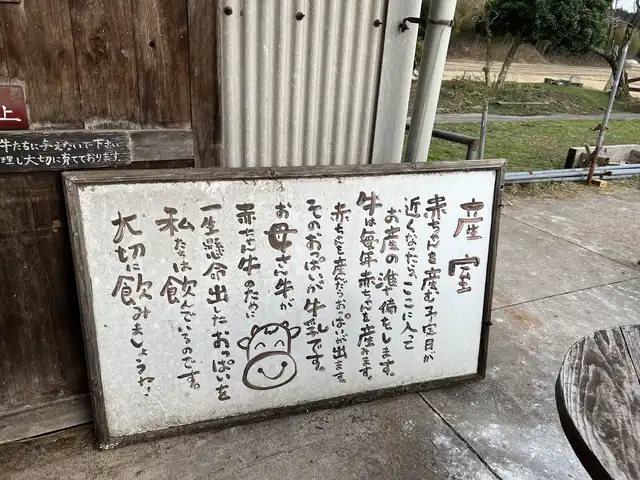 産室
赤ちゃんを産む予定日が
近くなったら、ここに入って
お産の準備をします。
牛は毎年赤ちゃんを産みます。
赤ちゃんを産んだらおっぱいが出ます。
そのおっぱいが牛乳です。
お母さん牛が
赤ちゃん牛のために
一生懸命出したおっぱいを
私たちは飲んでいるのです。
大切に飲みましょうね!
上
牛たちに与えないで下さい
理し大切に育てております